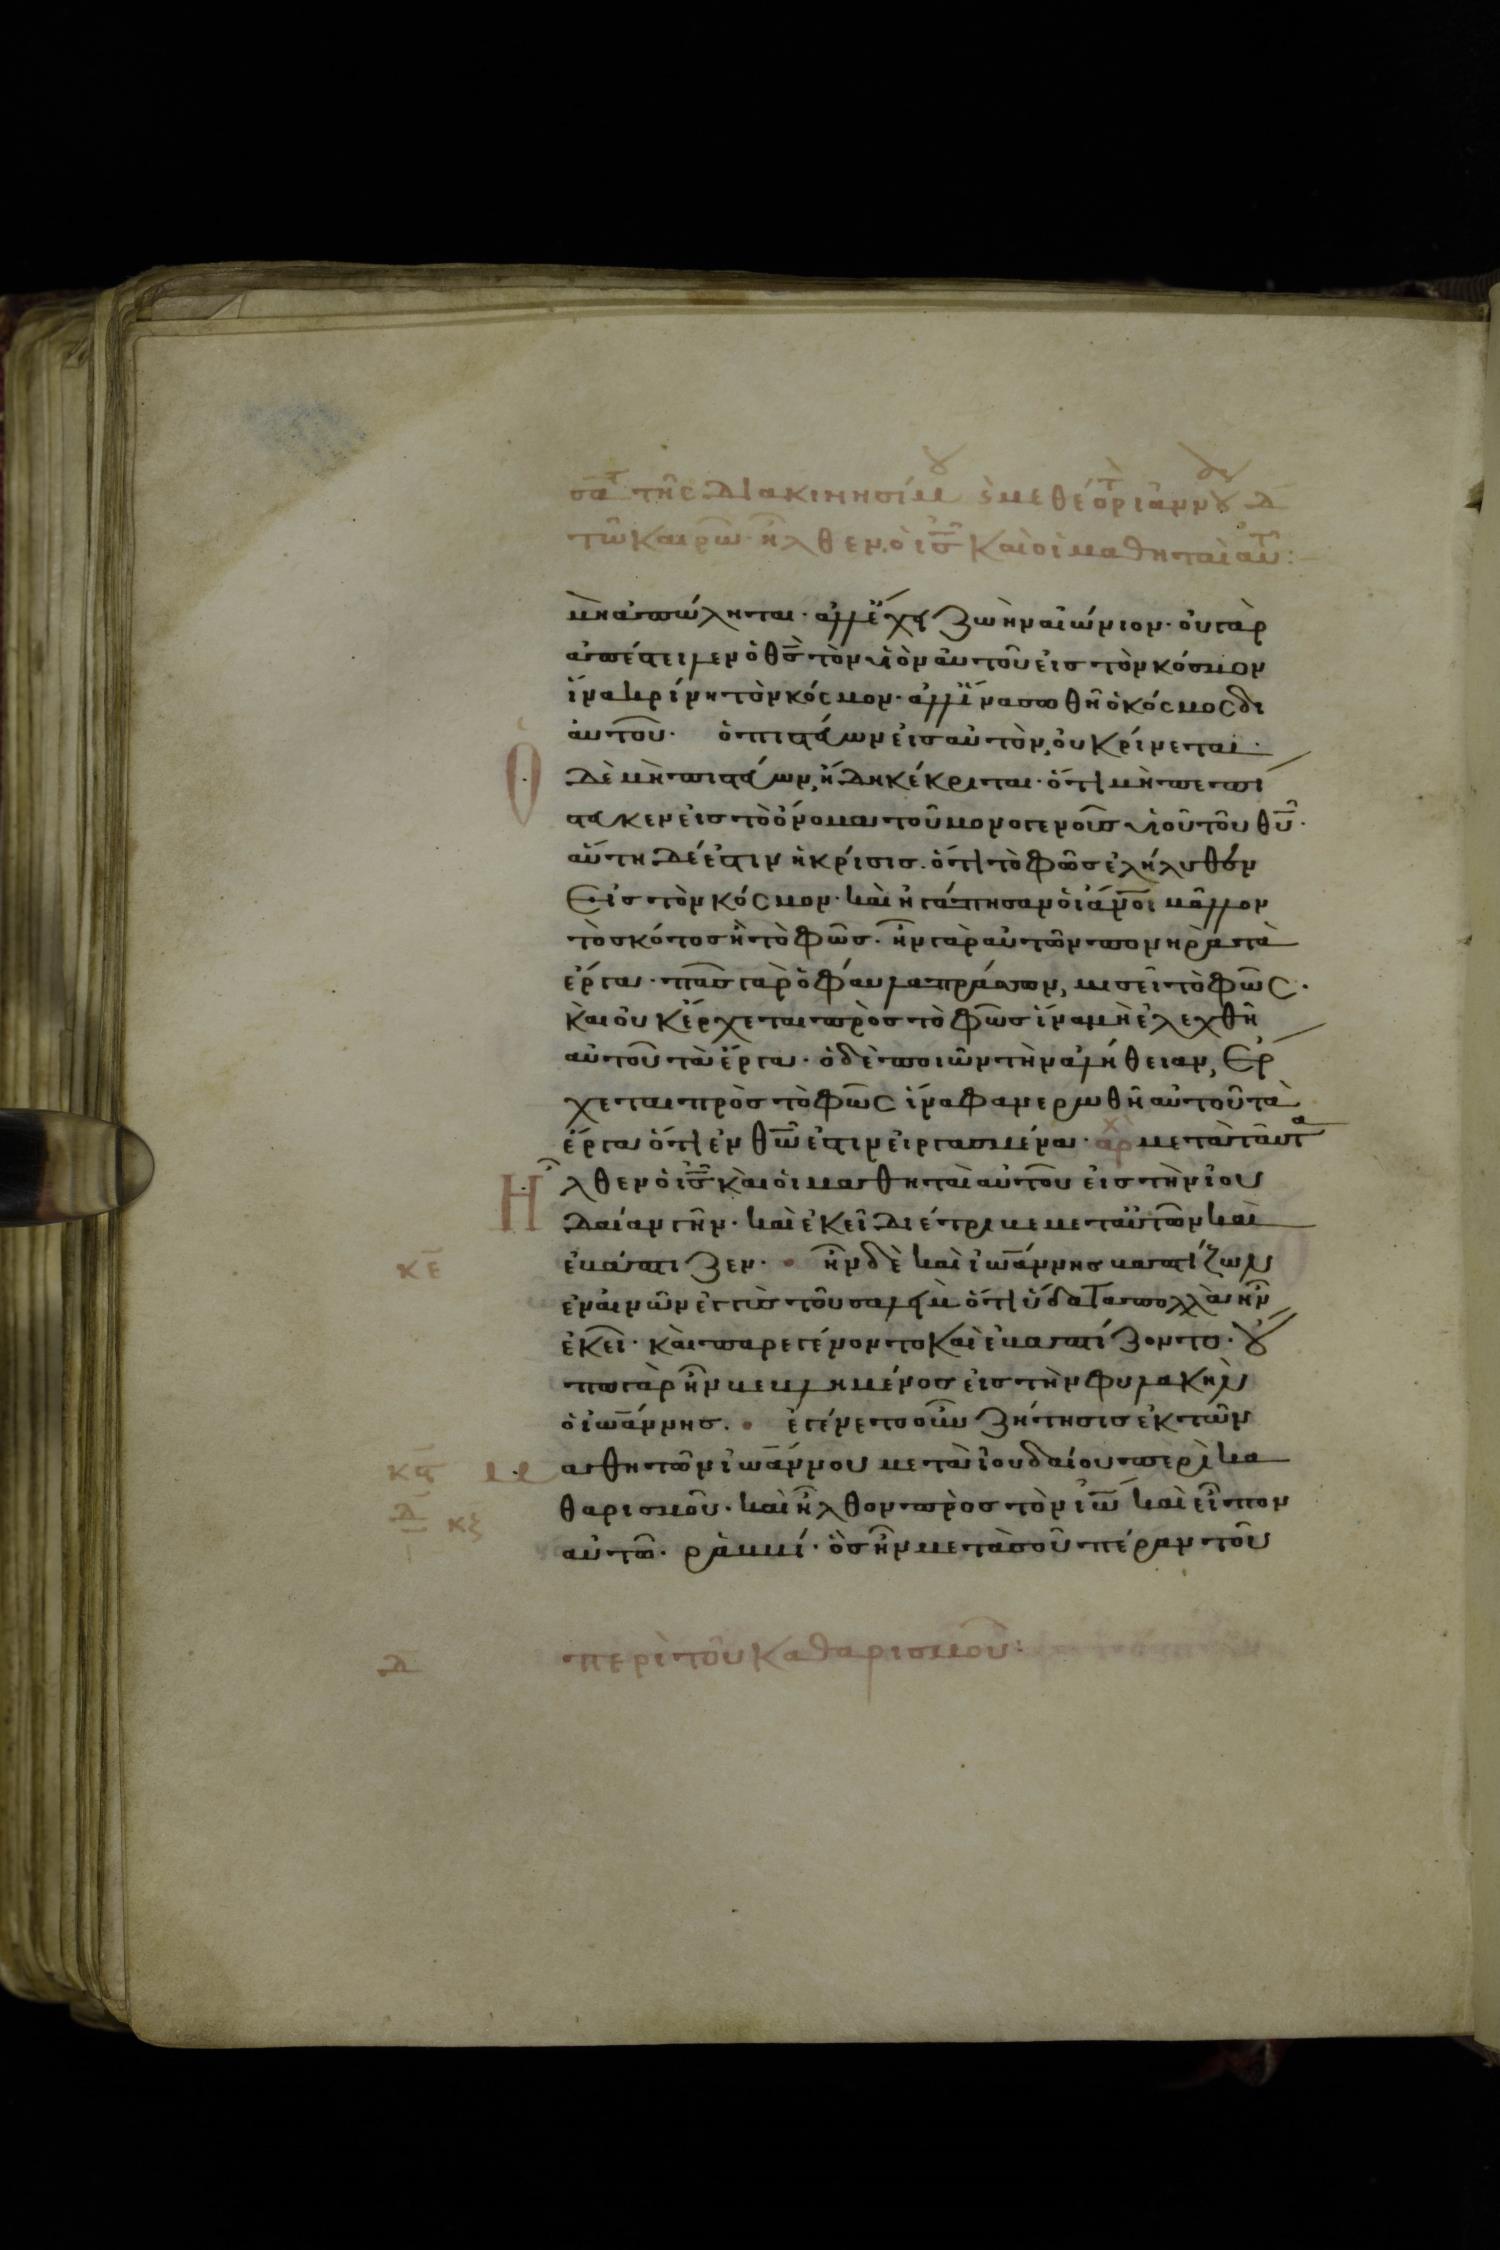 σα τῆς διακινησίμου ἐμεθέορτ ἰωάννου δ
τῶ καιρῶ ἦλθεν ὁ ις καὶ οἱ μαθηταὶ αυτ:
μὴ ἀπώληται· ἀλλ ἔχη ζωὴν αἰώνιον· οὐ γὰρ
ἀπέστειλεν ὁ θς τὸν υἱὸν αὐτοῦ εἰς τὸν κόσμον
ἵνα κρίνη τὸν κόσμον· ἀλλ ἵνα σωθῆ ὁ κόσμος δι
αὐτοῦ· ὁ πιστεύων εἰς αὐτὸν, οὐ κρίνεται·
Ὁ δὲ μὴ πιστεύων, ἤδη κέκριται· ὅτι μὴ πεπί
στευκεν εἰς τὸ ὄνομα τοῦ μονογενοῦς υἱοῦ τοῦ θυ·
αὕτη δέ ἐστιν ἡ κρίσις· ὅτι τὸ φῶς ἐλήλυθεν
εἰς τὸν κόσμον· καὶ ἠγάπησαν οἱ ανοι μᾶλλον
τὸ σκότος ἢ τὸ φῶς· ἦν γὰρ αὐτῶν πονηρὰ τὰ
ἔργα· πᾶς γὰρ ὁ φαῦλα πράσσων, μισεῖ τὸ φῶς·
καὶ οὐκ ἔρχεται πρὸς τὸ φῶς ἵνα μὴ ἐλεχθῆ
αὐτοῦ τὰ ἔργα· ὁ δὲ ποιῶν τὴν ἀλήθειαν, ἔρ
χεται πρὸς τὸ φῶς ἵνα φανερωθῆ αὐτοῦ τὰ
ἔργα ὅτι ἐν θω ἐστιν εἰργασμένα· αρχ μετὰ ταῦτα
Ἦλθεν ὁ ις καὶ οἱ μαθηταὶ αὐτοῦ εἰς τὴν ἰου
δαίαν γῆν· καὶ ἐκεῖ διέτριβε μετ αὐτῶν καὶ
κε ἐβάπτιζεν· ἦν δὲ καὶ ἰωάννης βαπτίζων
ἐν αἰνῶν ἐγγὺς τοῦ σαλὴμ ὅτι ὕδατα πολλὰ ἦν
ἐκεῖ· καὶ παρεγένοντο καὶ ἐβαπτίζοντο· οὔ
πω γὰρ ἦν βεβλημένος εἰς τὴν φυλακὴν
ὁ ἰωάννης· ἐγένετο οὖν ζήτησις ἐκ τῶν
κϛ μαθητῶν ἰωάννου μετὰ ἰουδαίου περὶ κα
δ κζ θαρισμοῦ· καὶ ἦλθον πρὸς τὸν ἰω καὶ εἶπον
αὐτῶ· ραββί· ὃς ἦν μετὰ σοῦ πέραν τοῦ
δ περὶ τοῦ καθαρισμοῦ: